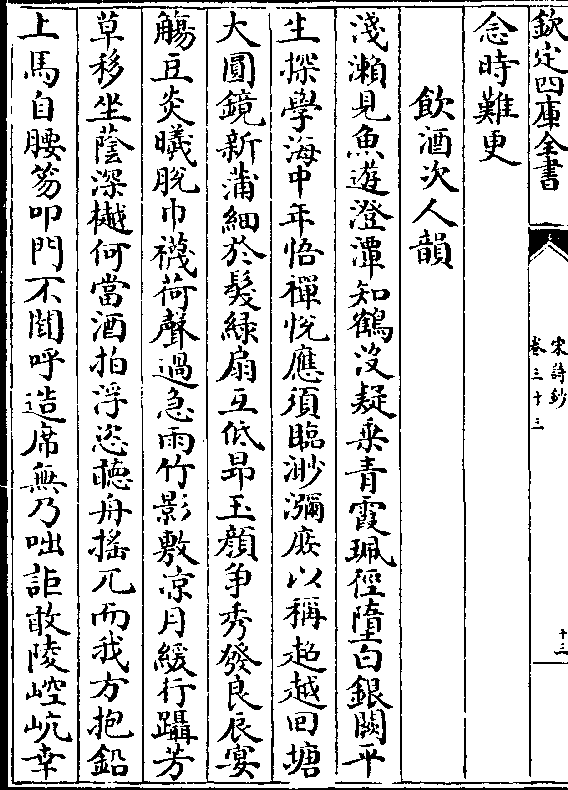 欽定四庫全書
宋詩鈔
卷三十三
十三
念時難更
飲酒次人韻
淺瀨見魚遊澄潭知鶴没疑乗青霞珮徑墮白銀闕平
生探學海中年悟禪悅應須臨渺瀰庶以稱超越回塘
大圓鏡新蒲細於髮緑扇互低昂玉顔争秀發良辰宴
觴豆炎曦脱巾襪荷聲過急雨竹影敷凉月緩行躡芳
草移坐蔭深樾何當酒拍浮恣聴舟搖兀而我方抱鉛
上馬自腰笏叩門不閽呼造席無乃咄詎敢陵崆㠋幸